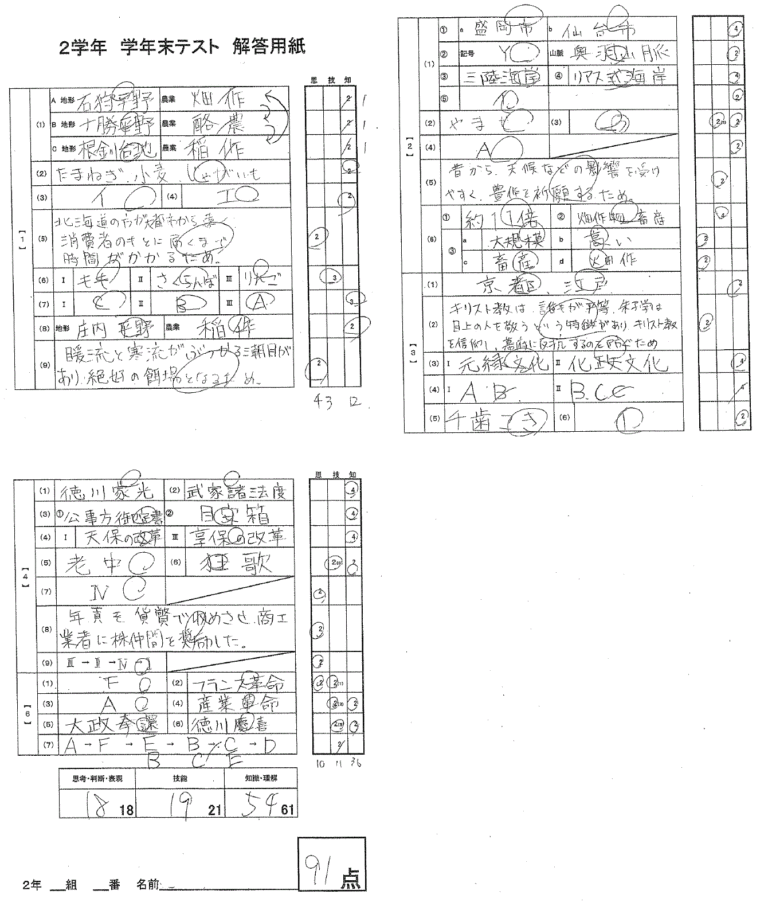 2学年 学年末テスト 解答用紙
思 技 知
【1】
(1) A 地形 石狩平野 農業 畑作 2 1
B 地形 十勝平野 農業 酪農 2 1
C 地形 根釧台地 農業 稲作 2 1
(2) たまねぎ、小麦、じゃがいも 2
(3) イ (4) エ 2
(5) 北海道のほうが
消費者のもとに届くまで 2
時間がかかるため。
(6) Ⅰ もも Ⅱ さくらんぼ Ⅲ りんご 3
(7) Ⅰ C Ⅱ B Ⅲ A 3
(8) 地形 庄内平野 農業 稲作 2
(9) 暖流と寒流がぶつかる潮目が 2
あり、絶好の餌場となるため。
4 3 12
【2】
(1) ① a 盛岡市 b 仙台市 4
② 記号 Y 山脈 奥羽山脈 4
③ 三陸海岸 ④ リアス式海岸 4
⑤ 2
(2) やませ (3)
(4) A
(5) 昔から、天候などの影響を受け 2
やすく、豊作を祈願するため。
(6) ① 約11倍 ② 畑作 畜産
③ a 大規模 b 高い 2
c 畜産 d 畑作 2
【3】
(1) 京都、江戸
(2) キリスト教は、誰もが平等、朱子学は
目上の人を敬うという特徴があり、キリスト教 2
を信仰し、幕府に反抗するのを防ぐため
(3) Ⅰ 元禄文化 Ⅱ 化政文化 4
(4) Ⅰ A B Ⅱ B. C 4
(5) 千歯こき (6)
思 技 知
【4】
(1) 徳川家光 (2) 武家諸法度 4
(3) ① 公事方御定書 ② 目安箱 4
(4) Ⅰ 天保の改革 Ⅱ 享保の改革 4
(5) 老中 (6) 狂歌
(7) Ⅳ 2
(8) 年貢を、貨幣で収めさせ、商工 2
業者に株仲間を奨励した。
(9) Ⅲ→Ⅱ→Ⅳ→Ⅰ 2
【6】
(1) F (2) フランス革命
(3) A (4) 産業革命
(5) 大政奉還 (6) 徳川慶喜
(7) A→F→E→B→C→D
B C E
10 11 36
思考・判断・表現 技能 知識・理解
18 18 19 21 54 61
91 点
2年 __組 __番 名前